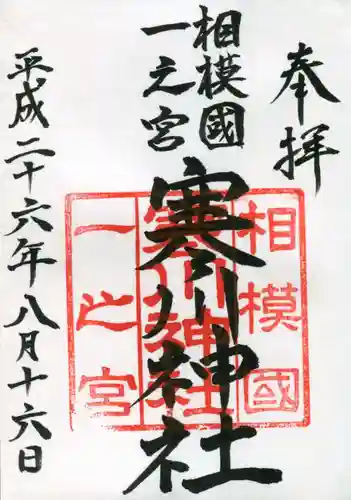 奉拝
相模國
一之宮
寒川神社
平成二十六年八月十六日
相模國
寒川神社
一之宮